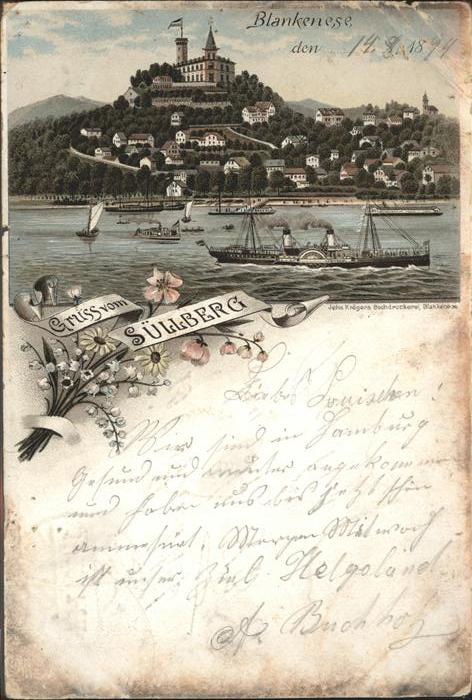 Blankenese,
den 14. 8. 1894
GRUSS vom
SÜLLBERG
Johs. Krögers Buchdruckerei, Blankenese.
Liebes Louischen!
Wir sind in Hamburg
Gesund und munter angekommen
und haben uns bis jetzt schön
amüsirt. Morgen Mittwoch
ist unser Ziel Helgoland.
A. Buchholz